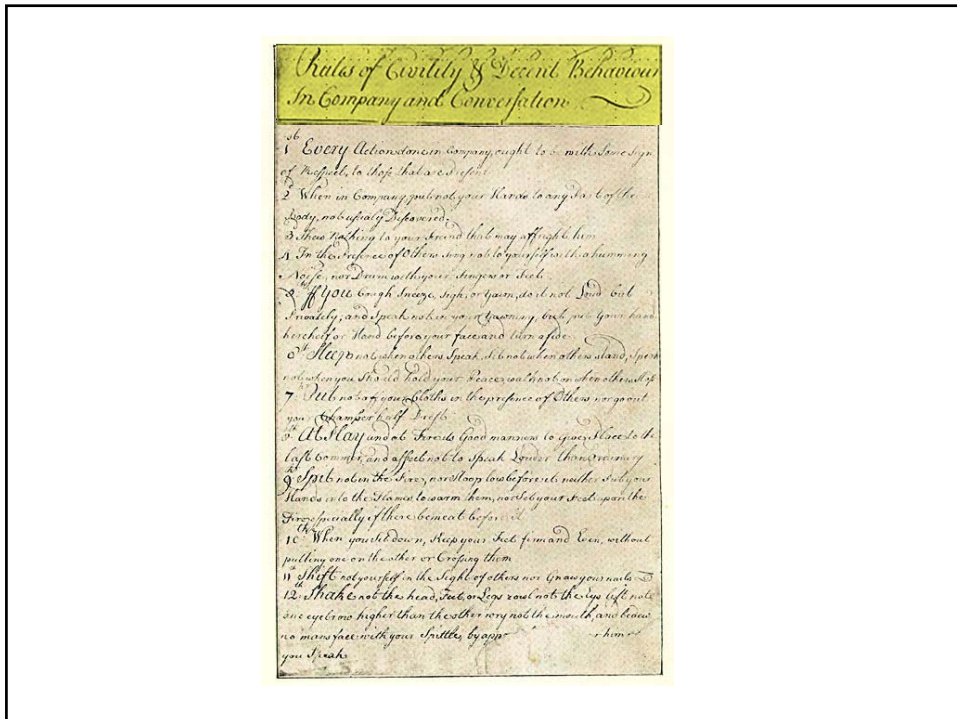 Rules of Civility & Decent Behaviour
In Company and Conversation
1st Every Action done in Company, ought to be with Some Sign
of Respect, to those that are Present
2d When in Company, put not your Hands to any Part of the
Body, not usualy Discovered.
3 Shew Nothing to your Freind that may affright him
4 In the Presence of Others sing not to yourself with a humming
Noise, nor Drum with your Fingers or Feet
5th If You Cough, Sneeze, Sigh, or Yawn, do it not Loud but
Privately; and Speak not in your Yawning, but put Your hand
kercheif or Hand before your face and turn aside
6th Sleep not when others Speak, Sit not when others stand, Speak
not when you Should hold your Peace, walk not on when others Stop
7th Put not off your Cloths in the presence of Others, nor go out
your Chamber half Drest
8th At Play and at Fire its Good manners to Give Place to the
last Commer, and affect not to Speak Louder than Ordinary
9th Spit not in the Fire, nor Stoop low before it neither Put your
Hands into the Flames to warm them, nor Set your Feet upon the
Fire especially if there be meat before it
10th When you Sit down, Keep your Feet firm and Even, without
putting one on the other or Crossing them
11th Shift not yourself in the Sight of others nor Gnaw your nails
12th Shake not the head, Feet, or Legs rowl not the Eys lift not
one eyebrow higher than the other wry not the mouth, and bedew
no mans face with your Spittle, by app r him
you Speak